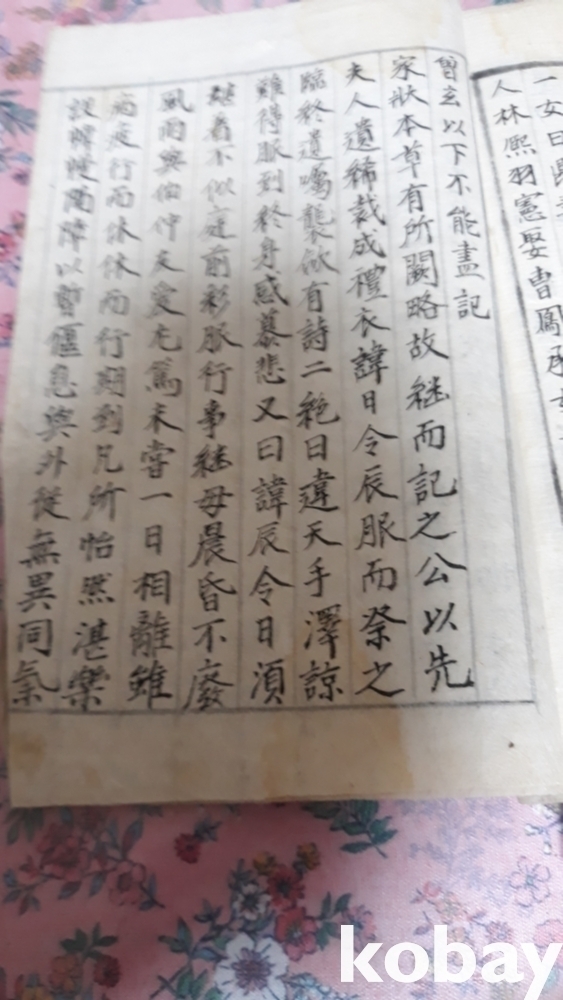 一女曰
人林熙羽憲娶曺鳳承
曾玄以下不能盡記
家狀本草有所闕略故継而記之公以先
夫人遺稀裁成禮衣諱日令辰服而祭之
臨終遺囑襲斂有詩二絶曰違天手澤諒
難得服到終身感慕悲又曰諱辰令日須
継着不似庭前彩服行事継母晨昏不廢
風雨與伯仲友愛尤篤未嘗一日相離雖
病疲行而休休而行期到凡所怡怡湛樂
設幃幔閒障以暫偃息與外從無異同氣
kobay